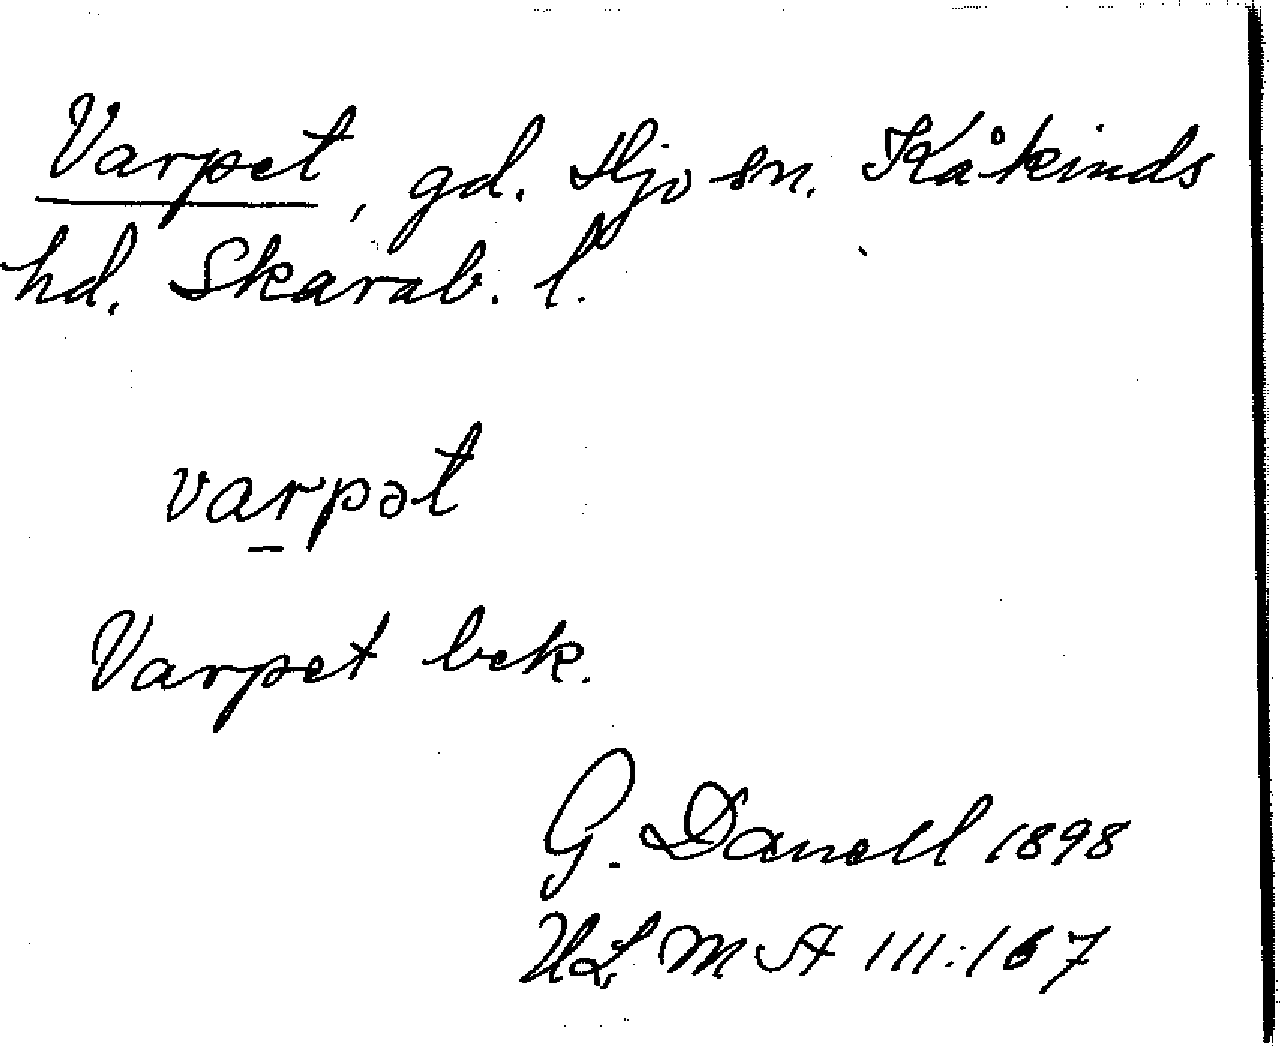 Varpet, gd. Hjo sn. Kåkinds
hd. Skarab. l.
varpət
Varpet bek.
G. Danell 1898
ULMA 111:167